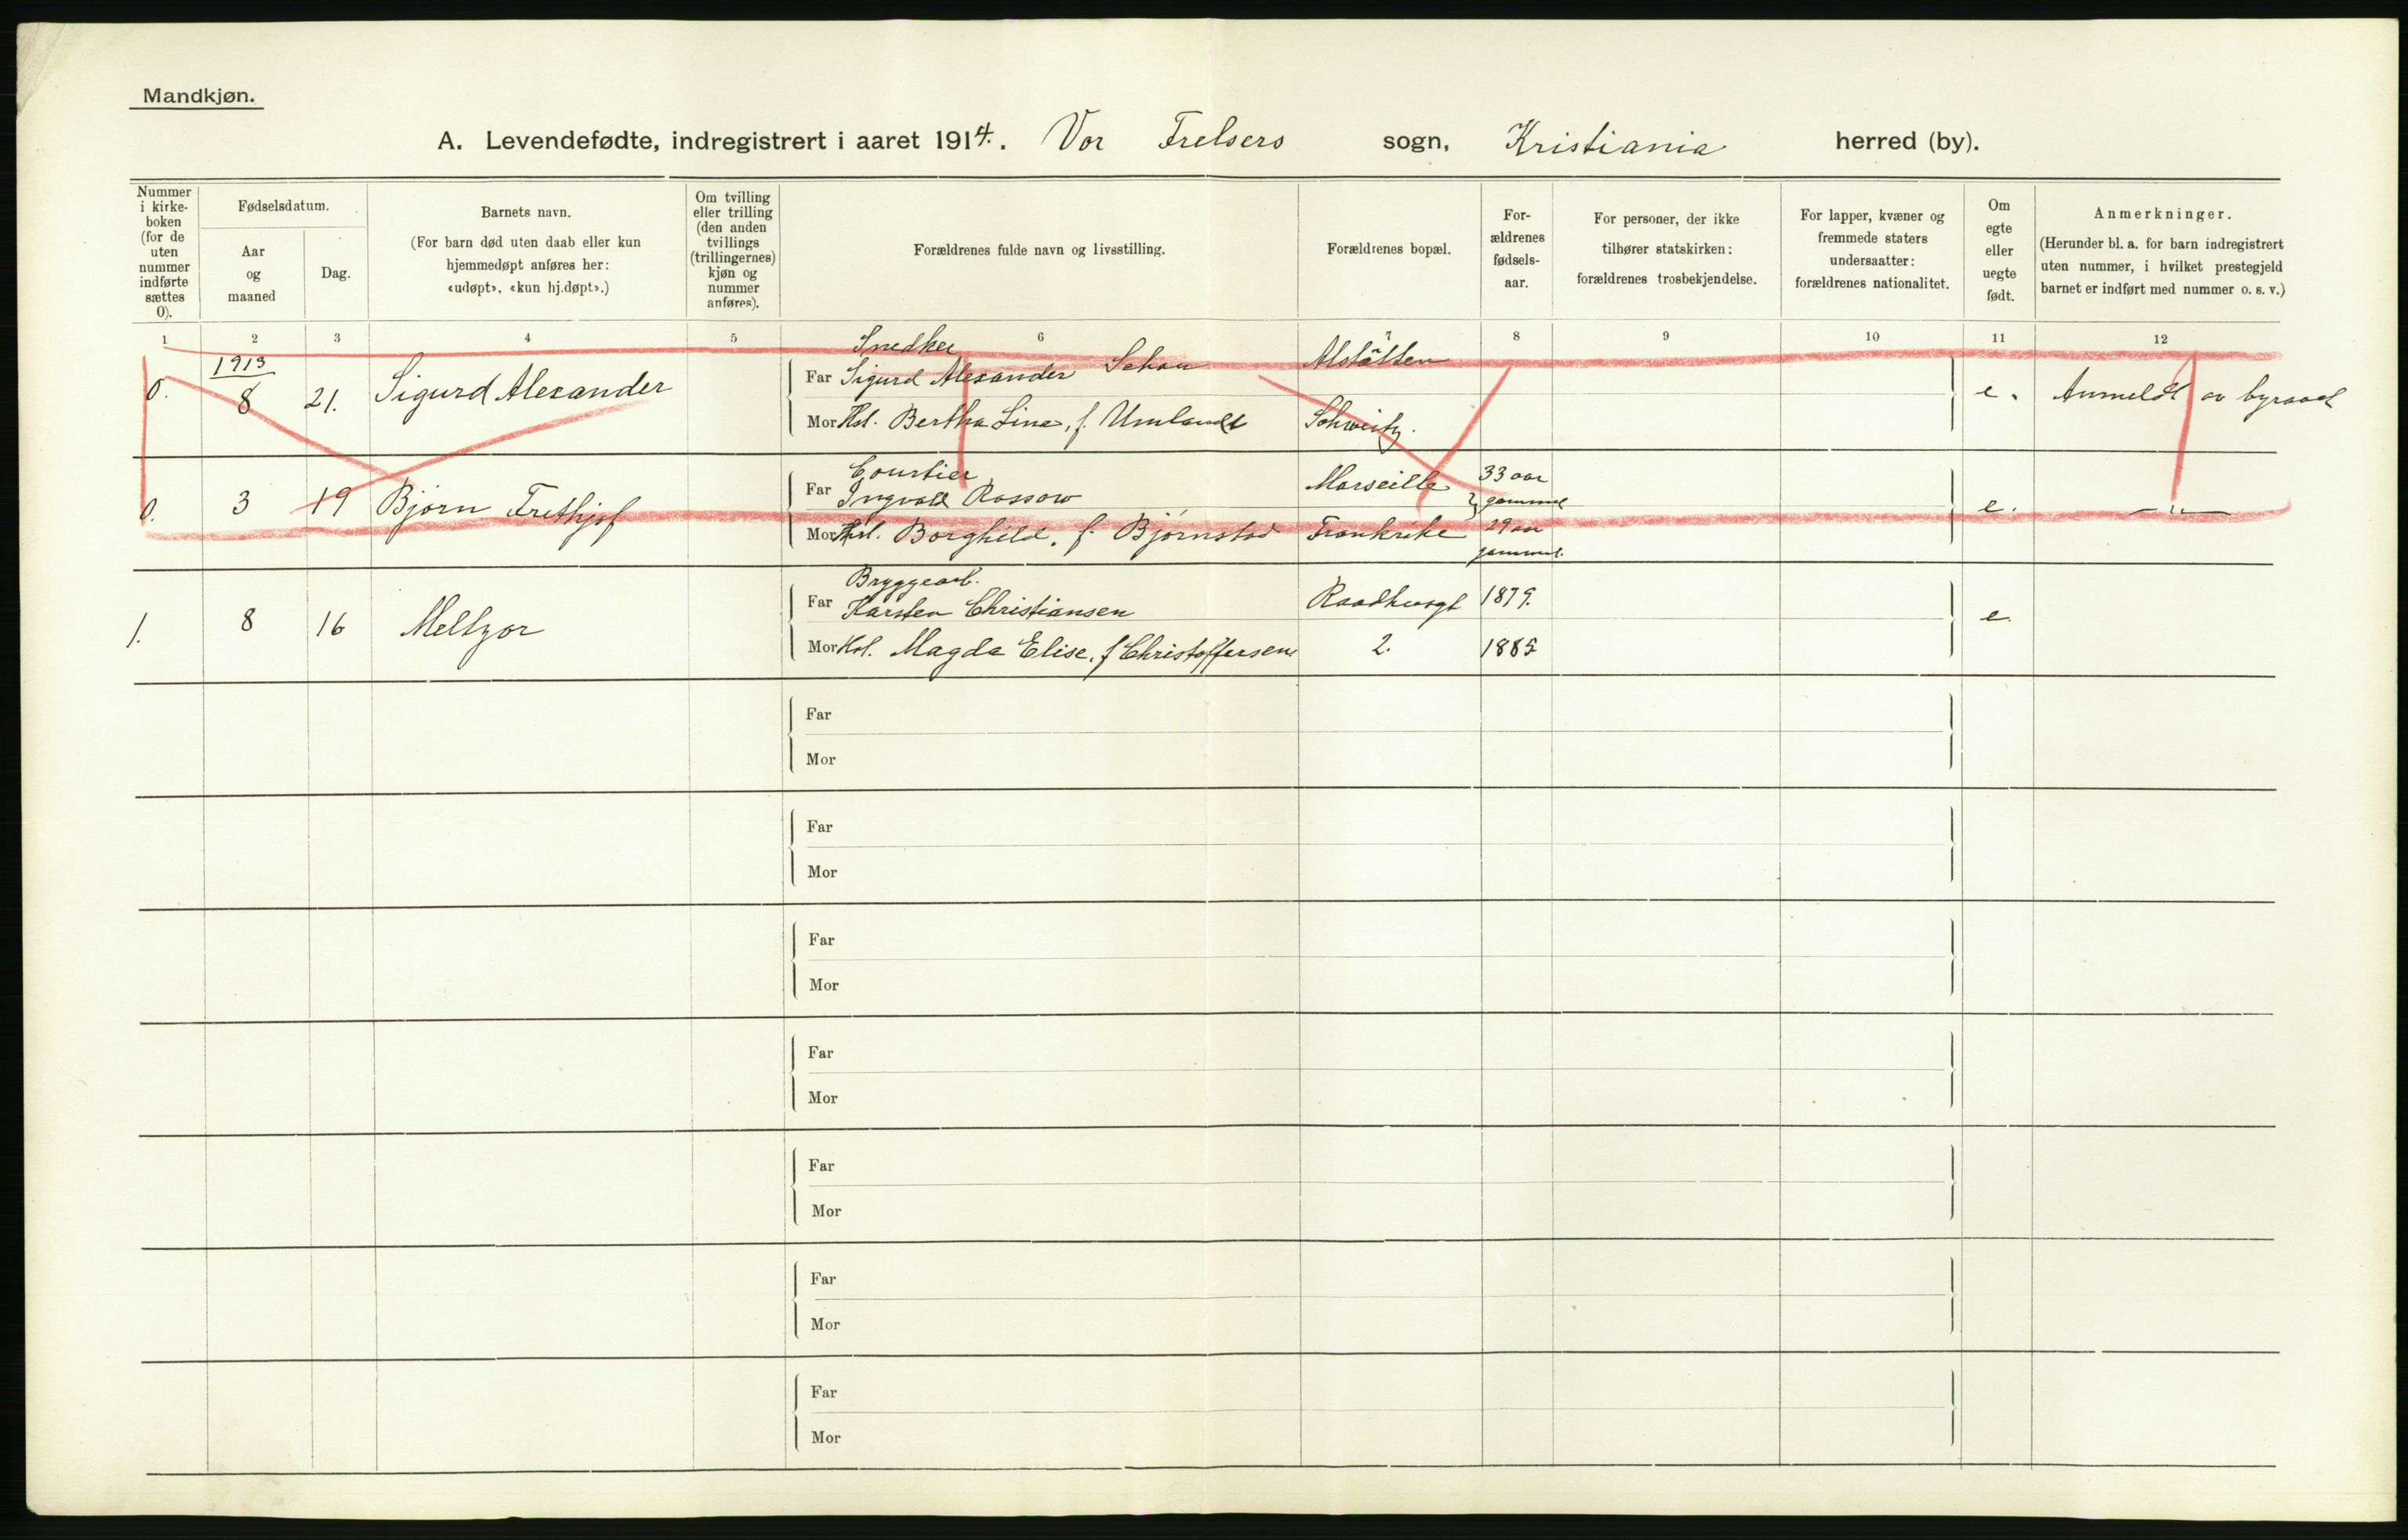 Mandkjøn.
A. Levendefødte, indregistrert i aaret 1914. Vor Frelsers sogn, Kristiania herred (by).
Nummer i kirke- boken (for de uten nummer indførte sættes 0).
Fødselsdatum.
Aar og maaned
Dag.
Barnets navn.
(For barn død uten daab eller kun hjemmedøpt anføres her: «udøpt», «kun hj.døpt».)
Om tvilling eller trilling (den anden tvillings (trillingernes) kjøn og nummer anføres).
Forældrenes fulde navn og livsstilling.
Forældrenes bopæl.
For- ældrenes fødsels- aar.
For personer, der ikke tilhører statskirken: forældrenes trosbekjendelse.
For lapper, kvæner og fremmede staters undersaatter: forældrenes nationalitet.
Om egte eller uegte født.
Anmerkninger.
(Herunder bl. a. for barn indregistrert uten nummer, i hvilket prestegjeld barnet er indført med nummer o. s. v.)
1 2 3 4 5 6 7 8 9 10 11 12
1913
Snedker
0. 8 21. Sigurd Alexander Far Sigurd Alexander Schou Alstätten e. Anmeldt av byraaet
Mor Hst. Bertha Line, f. Umlandt Schweitz.
Courtier
0. 3 19 Bjørn Frithjof Far Ingvald Rossow Marseille 33 aar gammel e. -"-
Mor Hst. Borghild, f. Bjørnstad Frankrike 29 aar gammel.
Bryggearb.
1. 8 16 Meltzor Far Karsten Christiansen Raadhusgt 1879. e.
Mor Hst. Magda Elise, f Christoffersen 2. 1885
Far
Mor
Far
Mor
Far
Mor
Far
Mor
Far
Mor
Far
Mor
Far
Mor